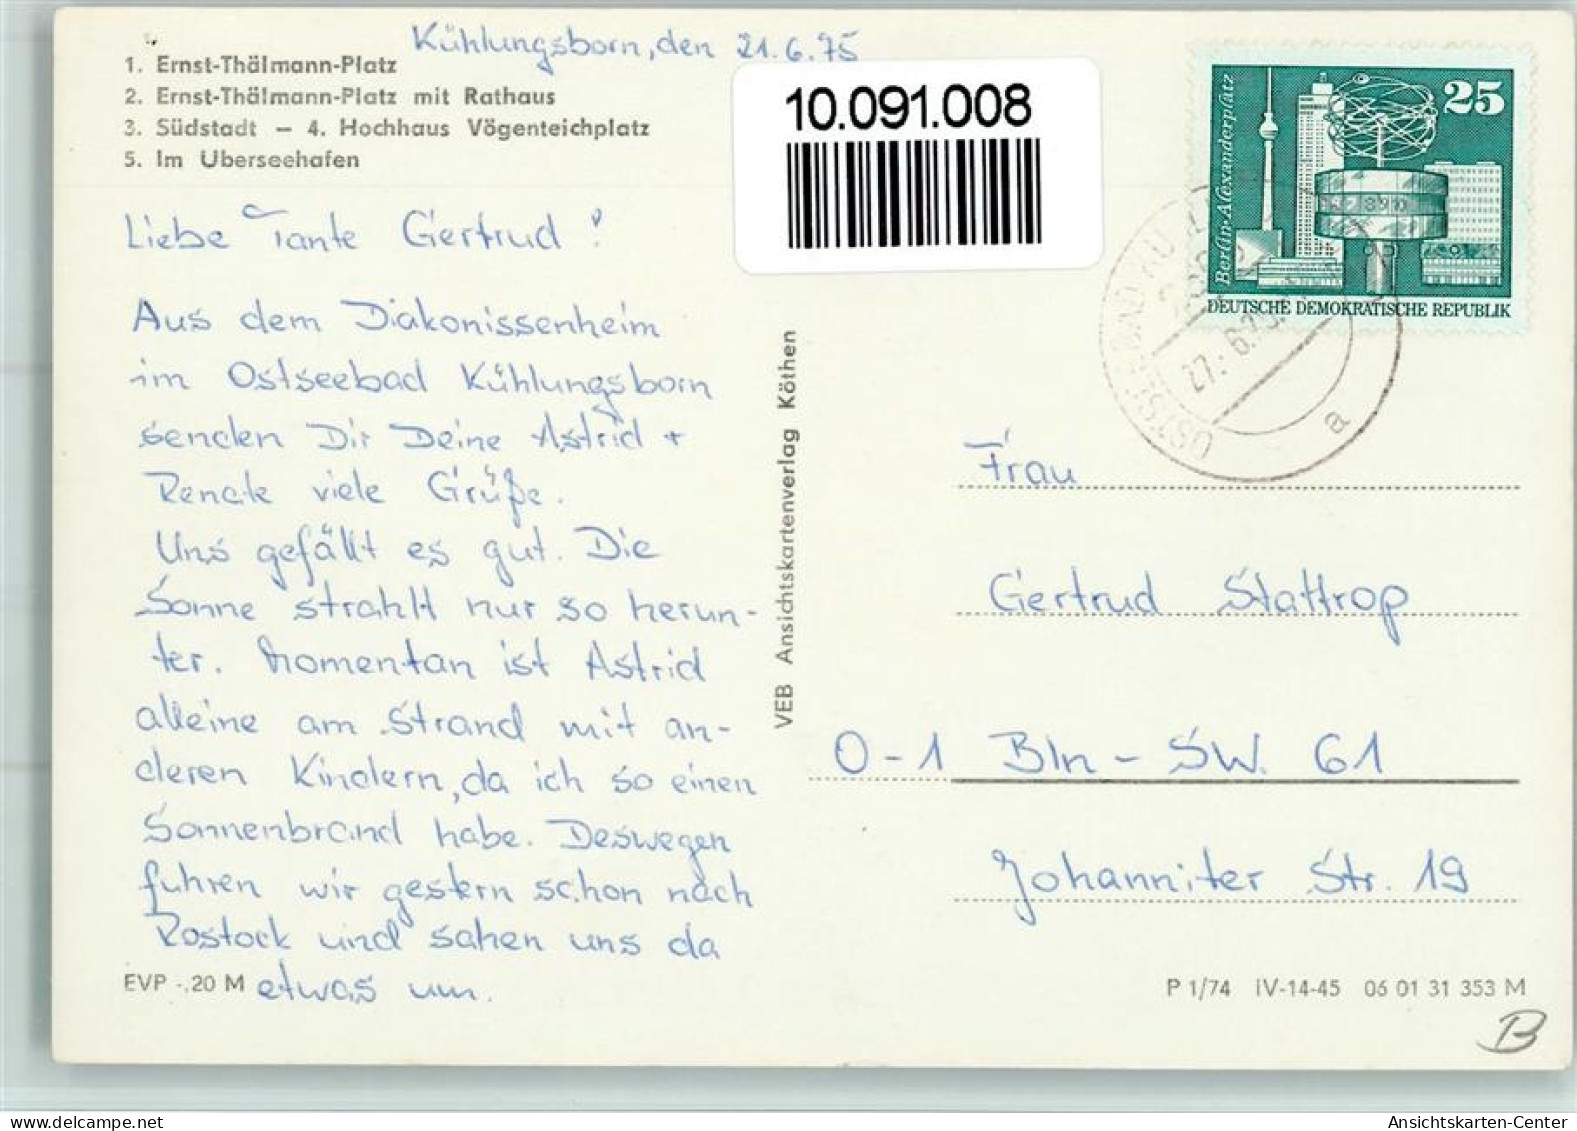 Kühlungsborn, den 21.6.75
1. Ernst-Thälmann-Platz
2. Ernst-Thälmann-Platz mit Rathaus
3. Südstadt – 4. Hochhaus Vögenteichplatz
5. Im Uberseehafen
10.091.008
25
Berlin-Alexanderplatz
DEUTSCHE DEMOKRATISCHE REPUBLIK
27.6.75
a
Liebe Tante Gertrud!
Aus dem Diakonissenheim
im Ostseebad Kühlungsborn
senden Dir Deine Astrid +
Renate viele Grüße.
Uns gefällt es gut. Die
Sonne strahlt nur so herun-
ter. Momentan ist Astrid
alleine am Strand mit an-
deren Kindern, da ich so einen
Sonnenbrand habe. Deswegen
fuhren wir gestern schon nach
Rostock und sahen uns da
etwas um.
EVP -.20 M
VEB Ansichtskartenverlag Köthen
Frau
Gertrud Stattrop
0-1 Bln - SW. 61
Johanniter Str. 19
P 1/74 IV-14-45 06 01 31 353 M
B
www.delcampe.net
Ansichtskarten-Center